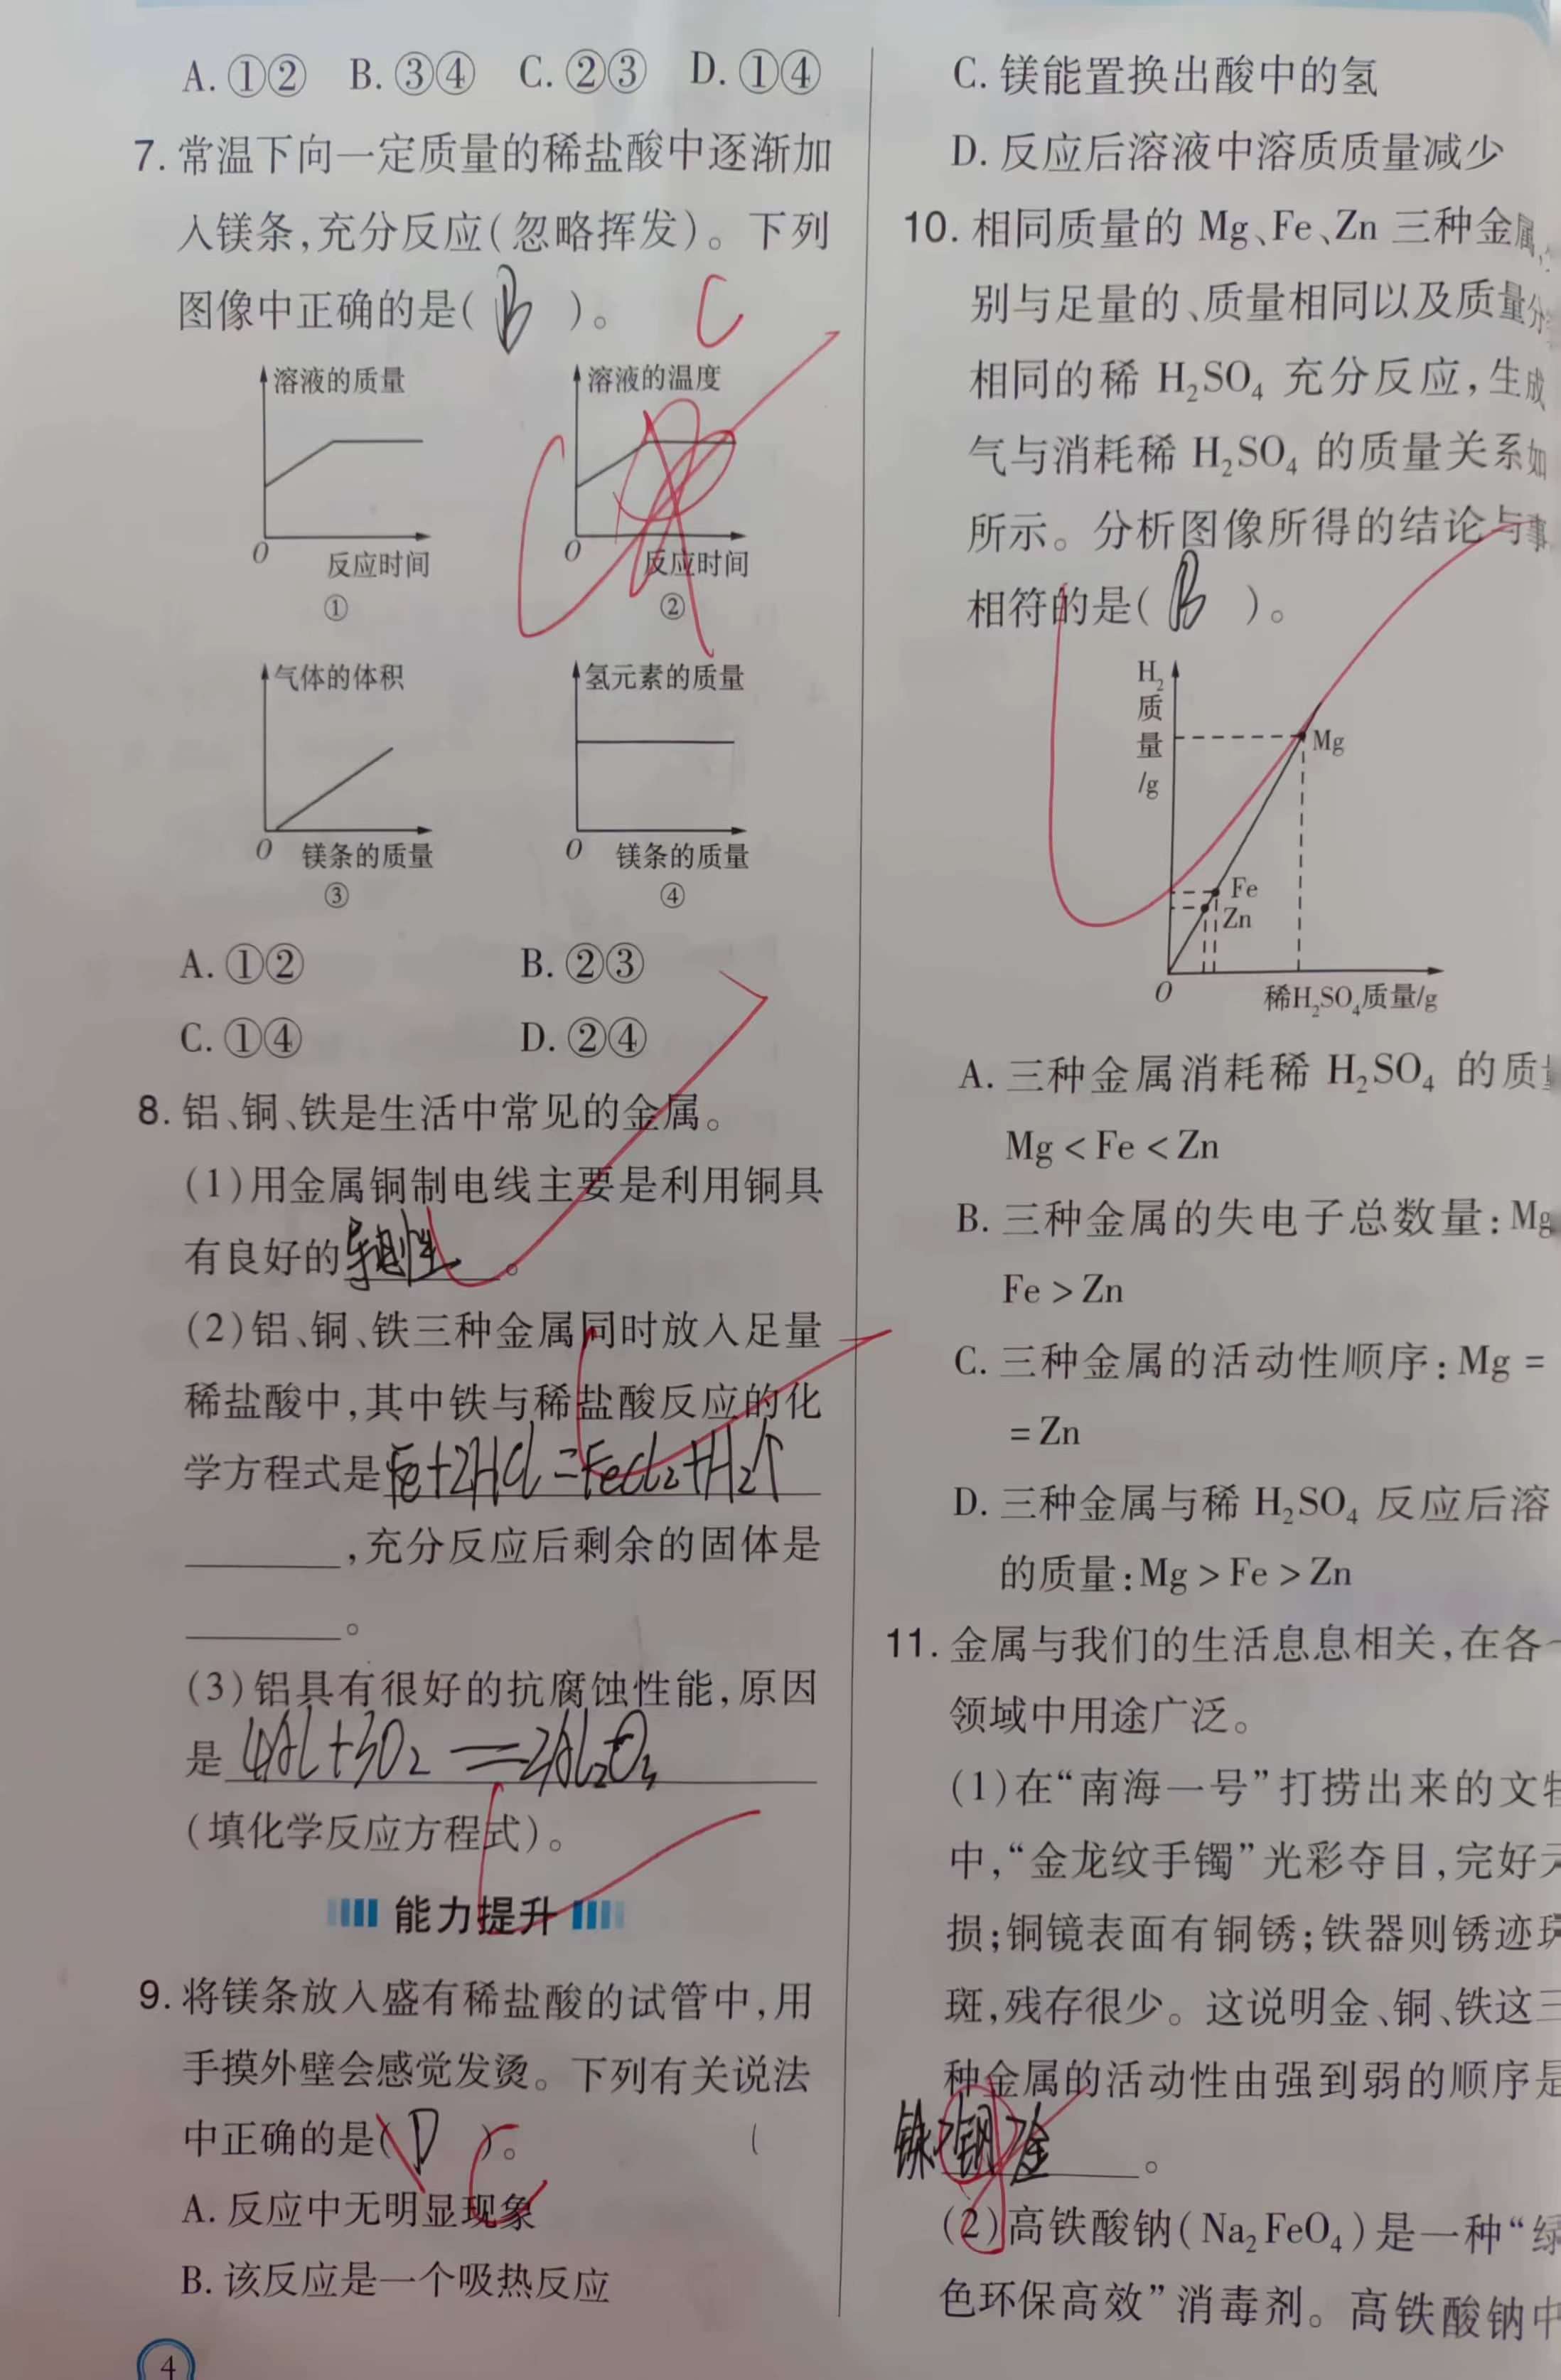 A. ①② B. ③④ C. ②③ D. ①④
7. 常温下向一定质量的稀盐酸中逐渐加
入镁条,充分反应(忽略挥发)。下列
图像中正确的是( B )。 C
溶液的质量
O
反应时间
①
溶液的温度
O
反应时间
②
气体的体积
O 镁条的质量
③
氢元素的质量
O 镁条的质量
④
A. ①② B. ②③
C. ①④ D. ②④
8. 铝、铜、铁是生活中常见的金属。
(1)用金属铜制电线主要是利用铜具
有良好的导电性。
(2)铝、铜、铁三种金属同时放入足量
稀盐酸中,其中铁与稀盐酸反应的化
学方程式是Fe+2HCl=FeCl₂+H₂↑
,充分反应后剩余的固体是
。
(3)铝具有很好的抗腐蚀性能,原因
是 4Al+3O₂=2Al₂O₃
(填化学反应方程式)。
能力提升
9. 将镁条放入盛有稀盐酸的试管中,用
手摸外壁会感觉发烫。下列有关说法
中正确的是( D )。
A. 反应中无明显现象
B. 该反应是一个吸热反应
4
C. 镁能置换出酸中的氢
D. 反应后溶液中溶质质量减少
10. 相同质量的 Mg、Fe、Zn 三种金属,
别与足量的、质量相同以及质量分
相同的稀 H₂SO₄ 充分反应,生成
气与消耗稀 H₂SO₄ 的质量关系如
所示。分析图像所得的结论与事
相符的是( B )。
H₂质量/g
Mg
Fe
Zn
O
稀H₂SO₄质量/g
A. 三种金属消耗稀 H₂SO₄ 的质
Mg < Fe < Zn
B. 三种金属的失电子总数量:Mg
Fe > Zn
C. 三种金属的活动性顺序:Mg =
= Zn
D. 三种金属与稀 H₂SO₄ 反应后溶
的质量:Mg > Fe > Zn
11. 金属与我们的生活息息相关,在各
领域中用途广泛。
(1)在“南海一号”打捞出来的文
中,“金龙纹手镯”光彩夺目,完好
损;铜镜表面有铜锈;铁器则锈迹
斑,残存很少。这说明金、铜、铁这三
种金属的活动性由强到弱的顺序是
铁>铜>金。
(2)高铁酸钠(Na₂FeO₄)是一种“绿
色环保高效”消毒剂。高铁酸钠中